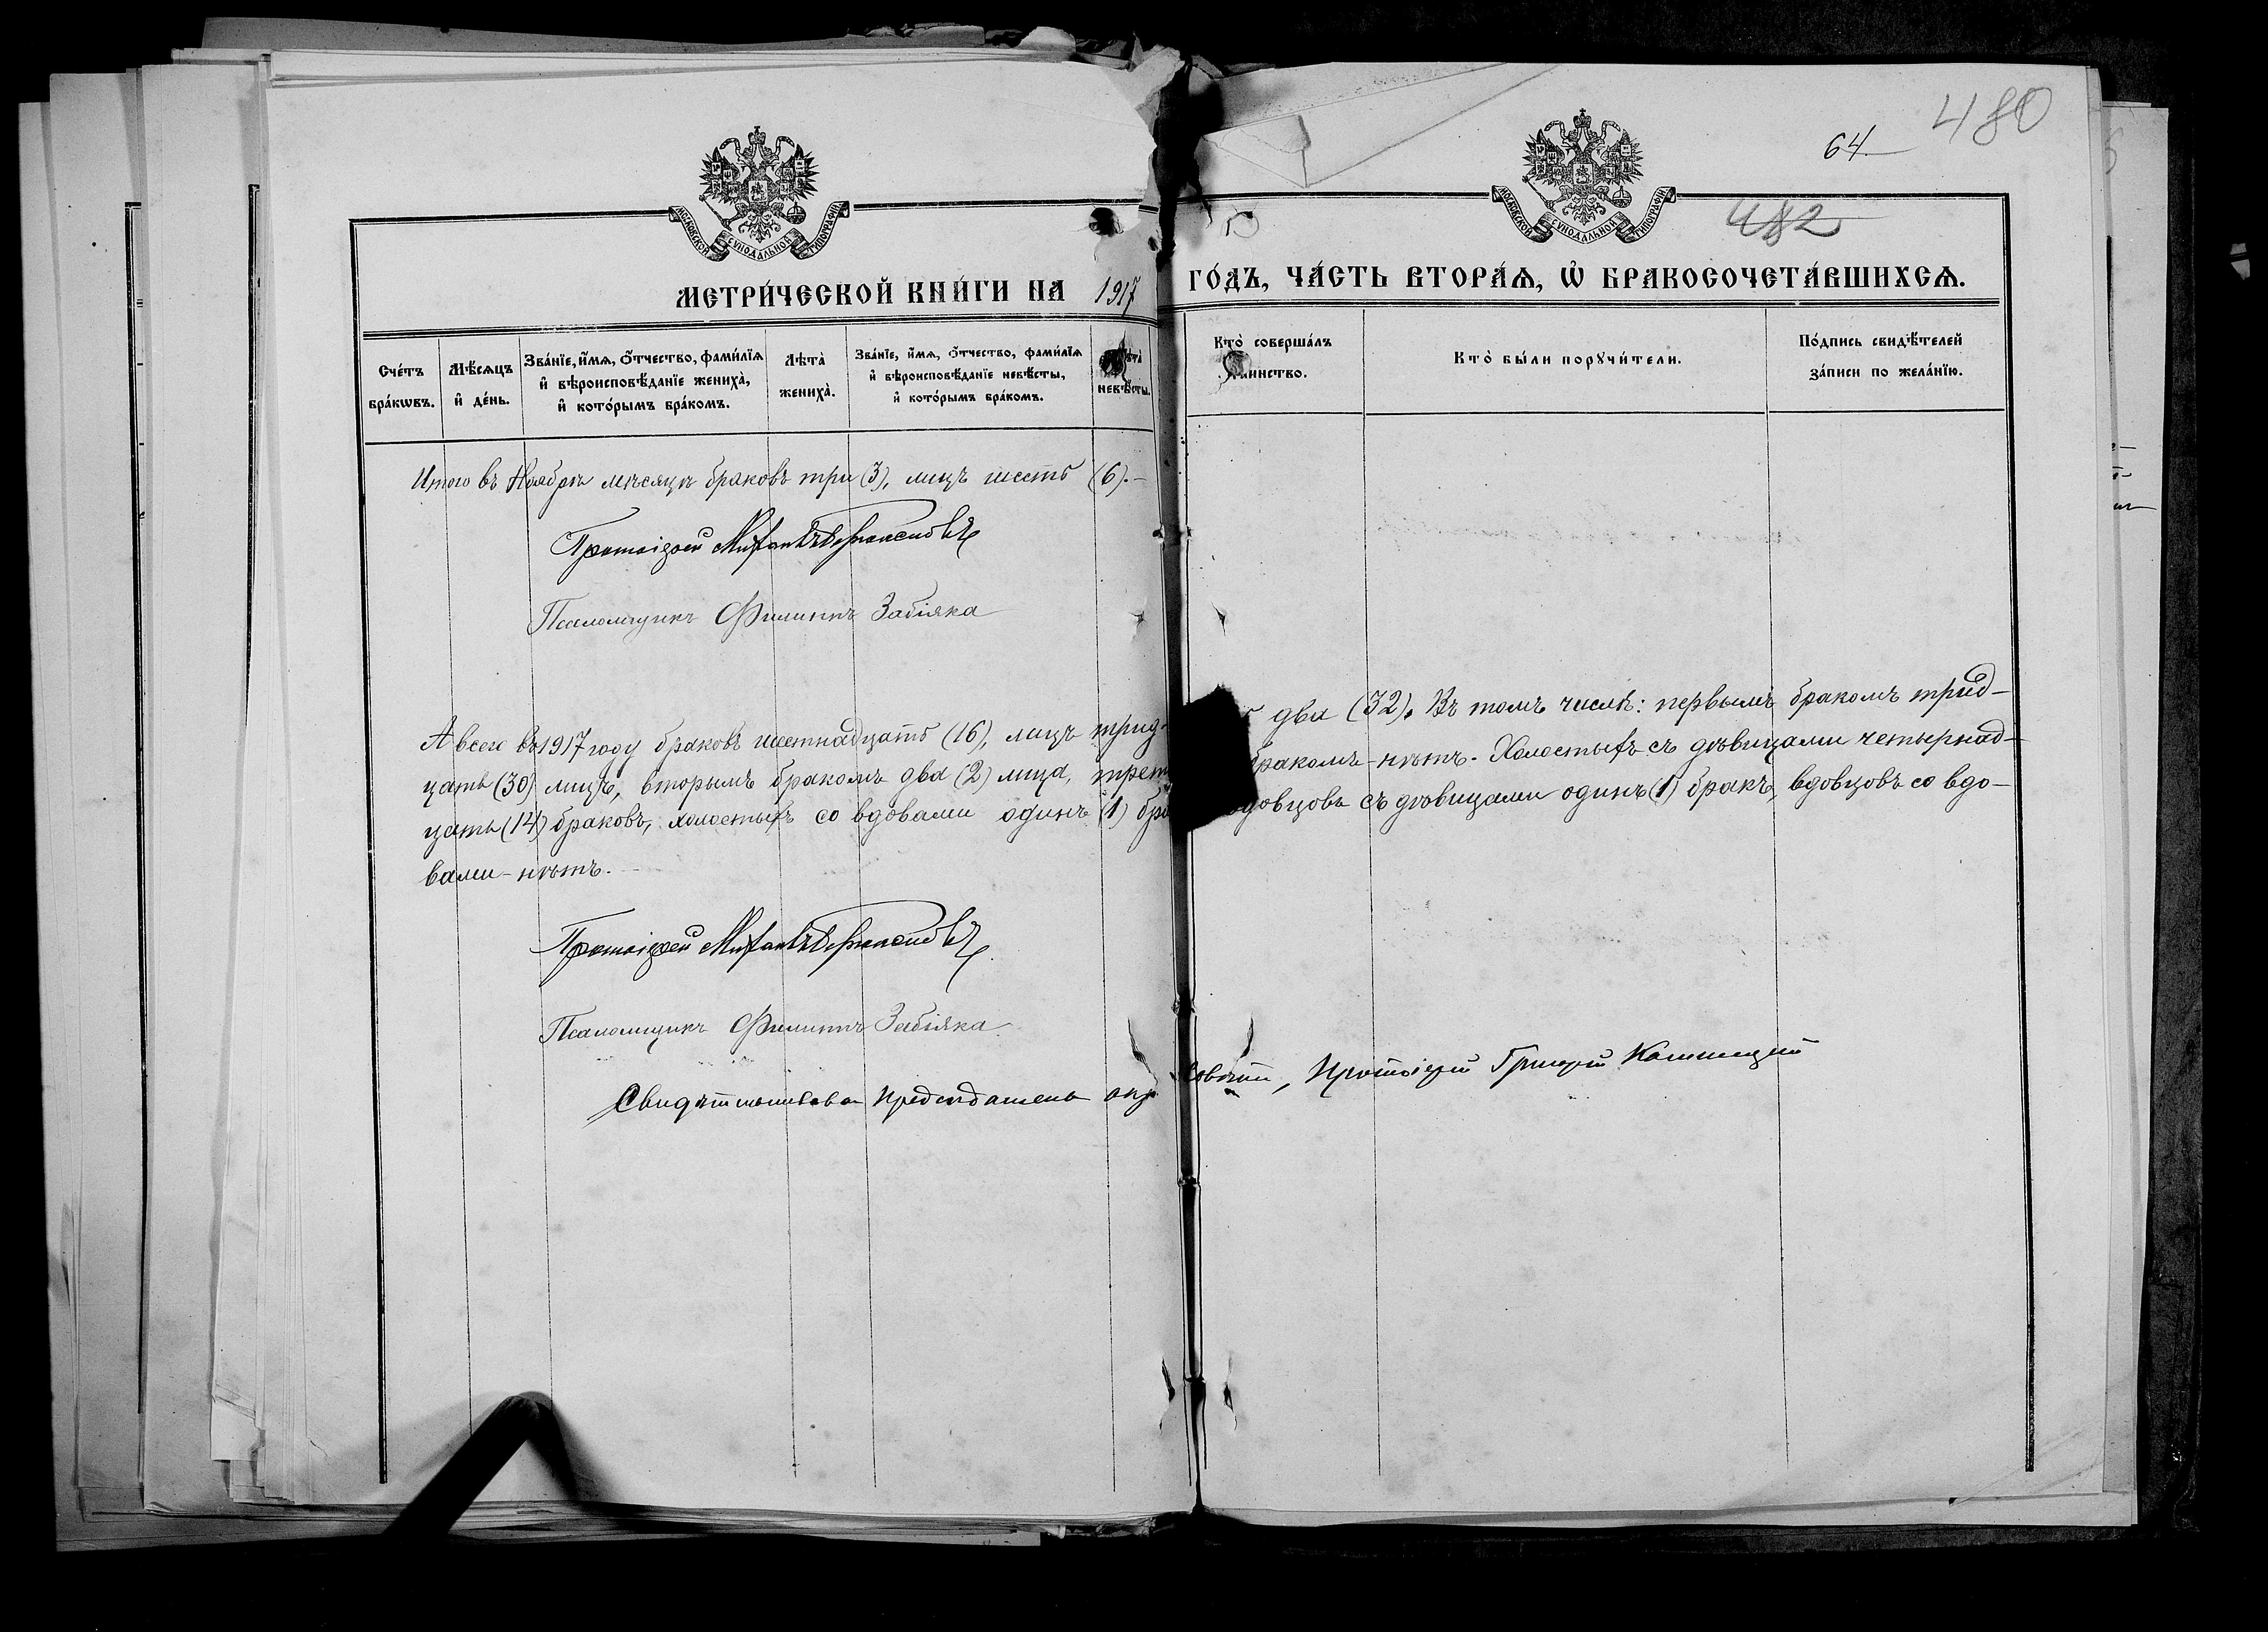 480
64.
482
МОСКОВСКОЙ СѴНОДАЛЬНОЙ ТИПОГРАФІИ
МОСКОВСКОЙ СѴНОДАЛЬНОЙ ТИПОГРАФІИ
МЕТРИ́ЧЕСКОЙ КНИ́ГИ НА 1917 ГО́ДЪ, ЧА́СТЬ ВТОРА́Ѧ, Ѽ БРАКОСОЧЕТА́ВШИХСѦ.
Сче́тъ бра́кѡвъ.
Мѣ́сѧцъ и҆ де́нь.
Зва́нїе, и҆́мѧ, ѻ҆́тчество, фами́лїѧ и҆ вѣроисповѣ́данїе жениха̀, и҆ кото́рымъ бра́комъ.
Лѣ́та̀ жениха̀.
Зва́нїе, и҆́мѧ, ѻ҆́тчество, фами́лїѧ и҆ вѣроисповѣ́данїе невѣ́сты, и҆ кото́рымъ бра́комъ.
невѣ́сты.
Кто̀ соверша́лъ таинство.
Кто̀ бы́ли порꙋчи́тели.
По́дпись свидѣ́телей за́писи по жела́нїю.
Итого въ Ноябрѣ мѣсяцѣ браковъ три (3), лицъ шесть (6).-
Протоіерей Михаилъ
Псаломщикъ Филиппъ Забіяка
А всего въ 1917 году браковъ шестнадцать (16), лицъ трид- два (32). Въ томъ числѣ: первымъ бракомъ трид-
цать (30) лицъ, вторымъ бракомъ два (2) лица, трет бракомъ - нѣтъ. Холостыхъ съ дѣвицами четырнад-
цать (14) браковъ, холостыхъ со вдовами одинъ (1) бра вдовцовъ съ дѣвицами одинъ (1) бракъ, вдовцовъ со вдо-
вами - нѣтъ.
Протоіерей Михаилъ
Псаломщикъ Филиппъ Забіяка
Свидѣтельствовал Предсѣдатель окр. Совѣта, Протоіерей Григорій